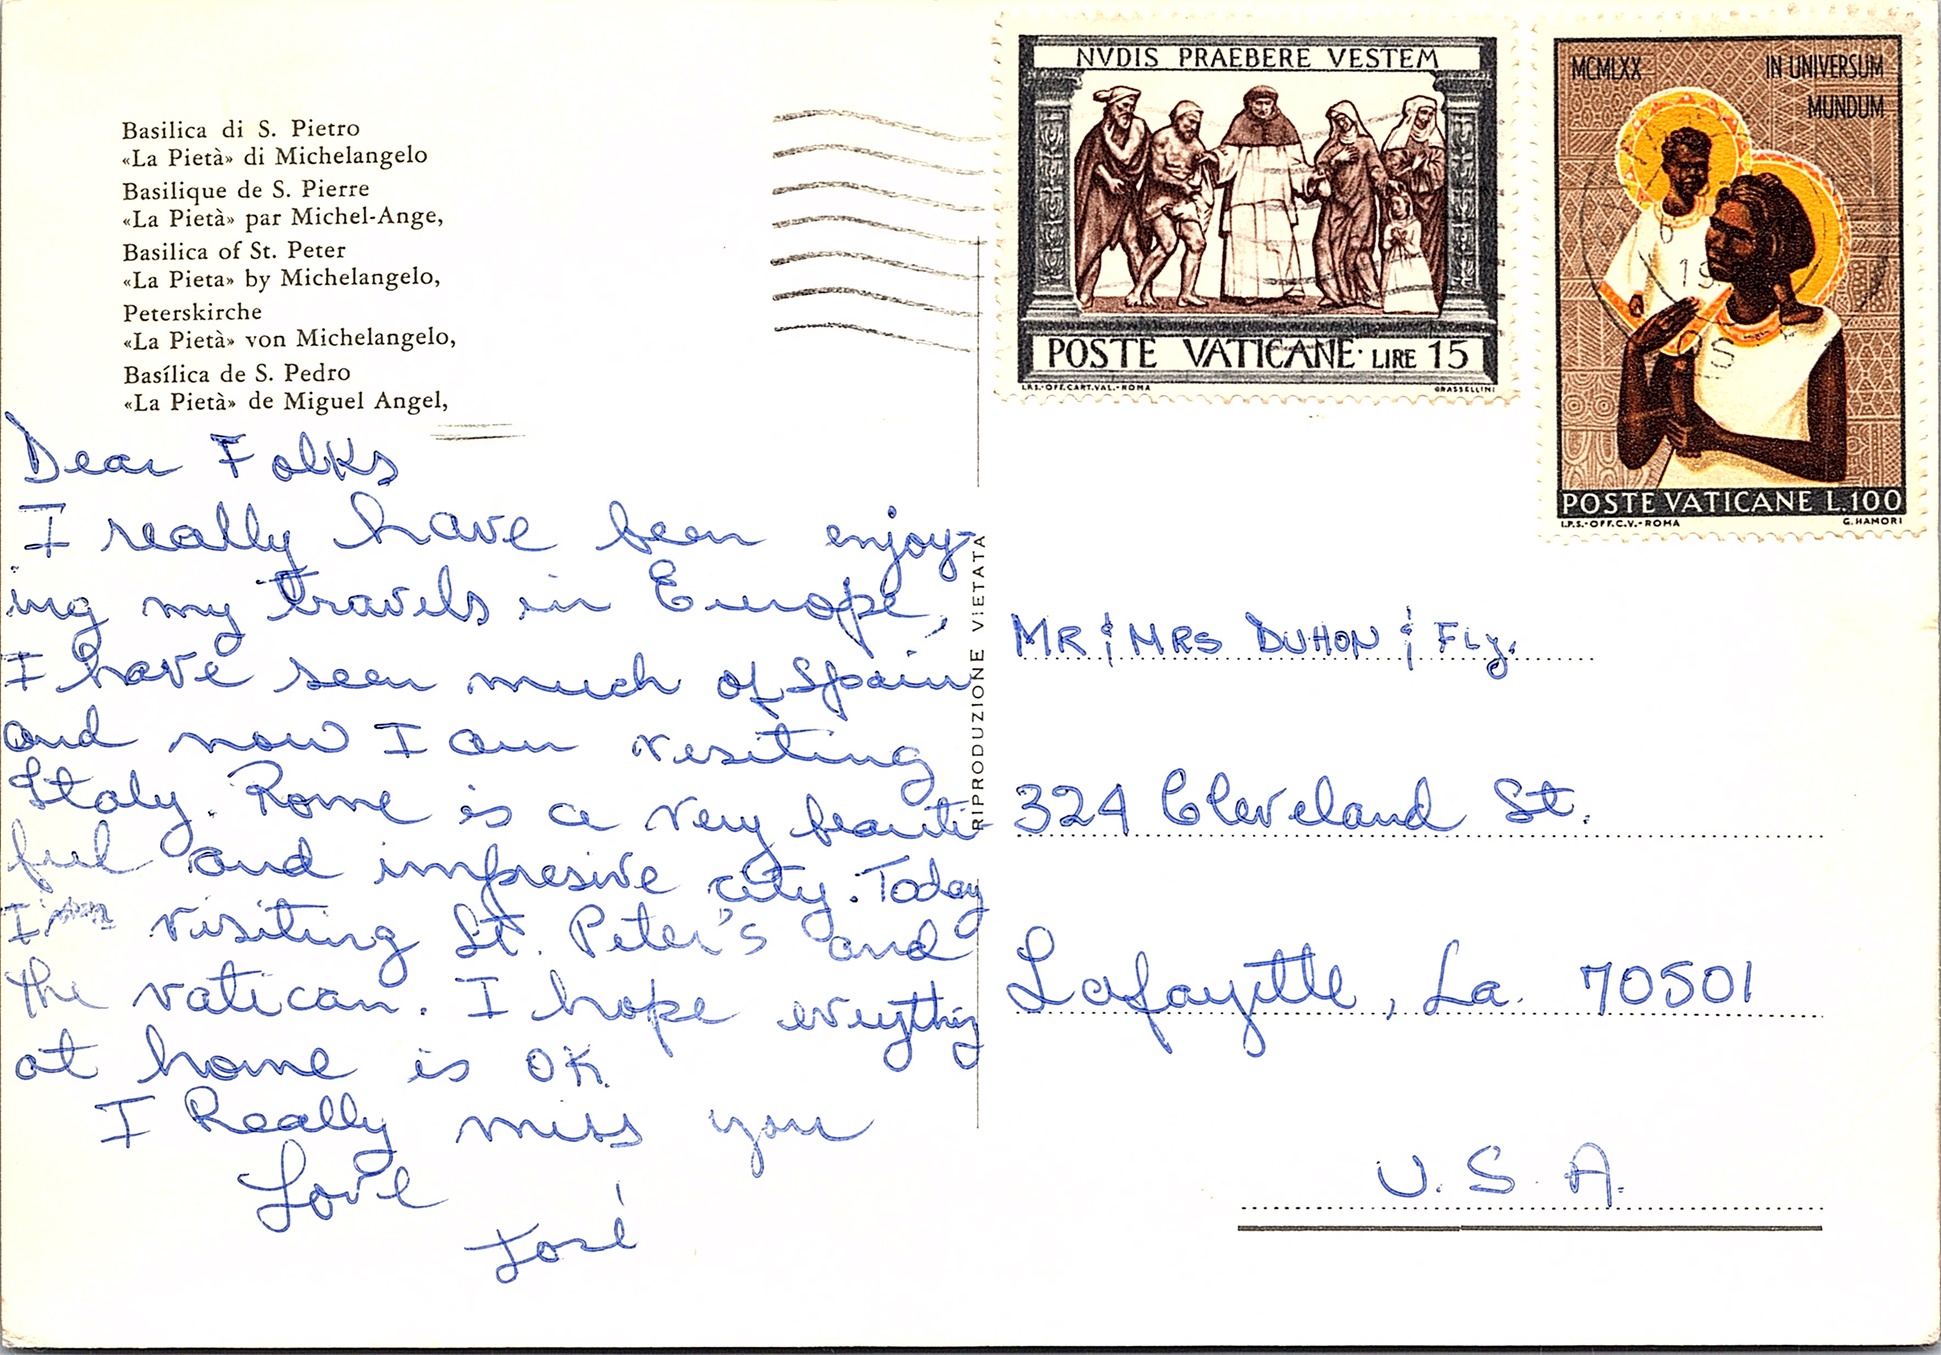 Basilica di S. Pietro
«La Pietà» di Michelangelo
Basilique de S. Pierre
«La Pietà» par Michel-Ange,
Basilica of St. Peter
«La Pieta» by Michelangelo,
Peterskirche
«La Pietà» von Michelangelo,
Basílica de S. Pedro
«La Pietà» de Miguel Angel,
Dear Folks
I really have been enjoy-
ing my travels in Europe,
I have seen much of Spain
and now I am visiting
Italy. Rome is a very beauti-
ful and impresive city. Today
I'm visiting St. Peter's and
the vatican. I hope everything
at home is OK
I Really miss you
Love
José
RIPRODUZIONE VIETATA
NVDIS PRAEBERE VESTEM
POSTE VATICANE · LIRE 15
I.P.S.-OFF.CART.VAL.-ROMA GRASSELLINI
MCMLXX IN UNIVERSUM
MUNDUM
POSTE VATICANE L.100
I.P.S.-OFF.C.V.-ROMA G. HAMORI
MR & MRS DUHON & Fly.
324 Cleveland St.
Lafayette, La. 70501
U.S.A.